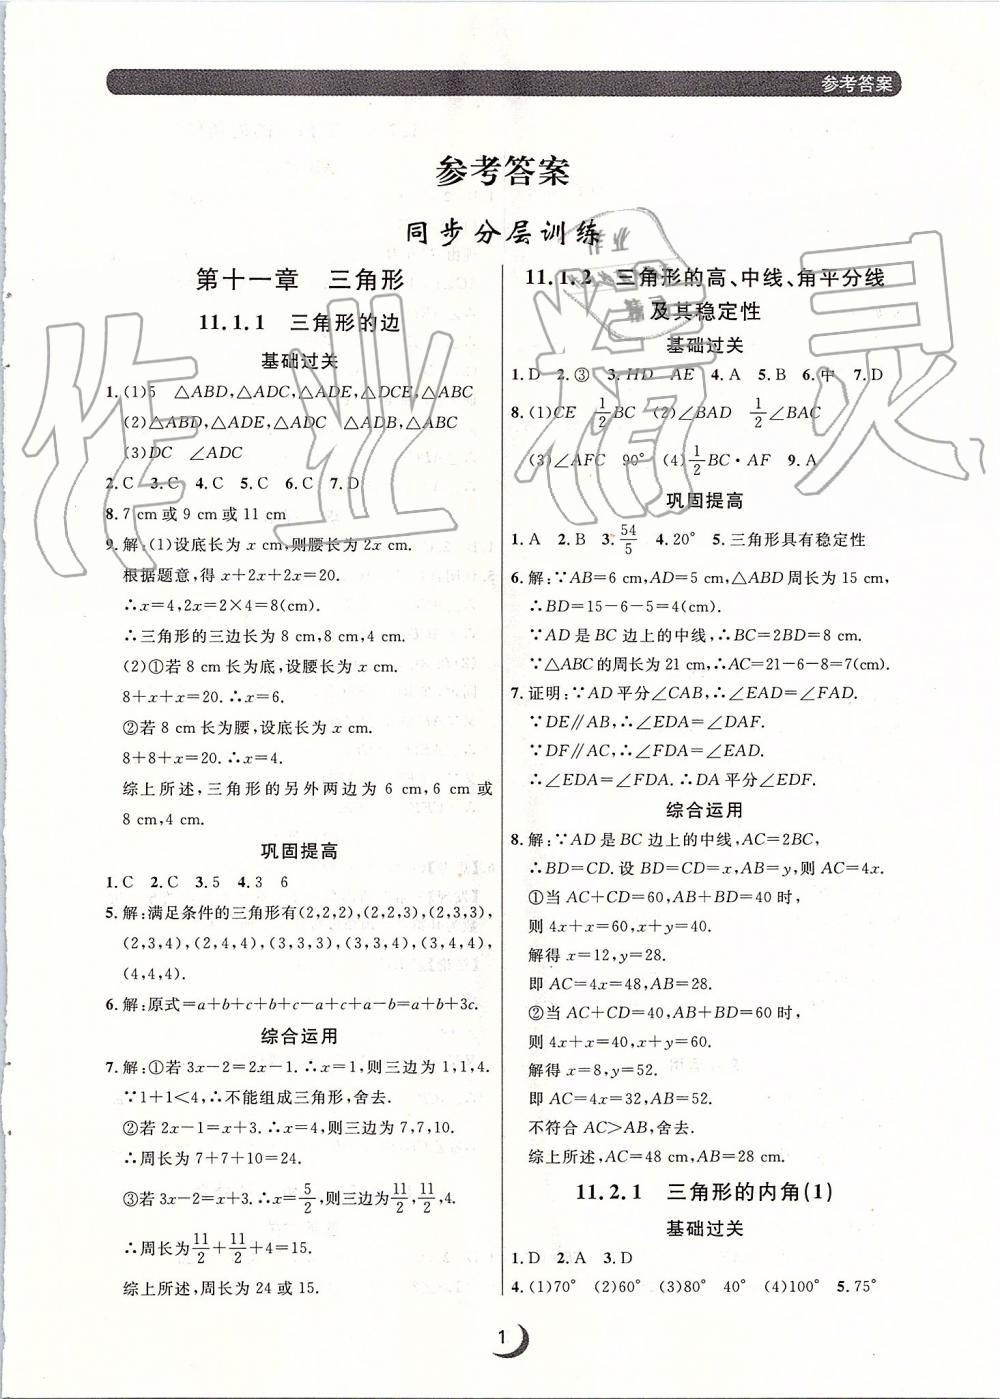 参考答案
参考答案
同步分层训练
第十一章 三角形
11.1.1 三角形的边
基础过关
1.(1)5 △ABD,△ADC,△ADE,△DCE,△ABC
(2)△ABD,△ADE,△ADC △ADB,△ABC
(3)DC ∠ADC
2.C 3.C 4.C 5.C 6.C 7.D
8.7 cm或9 cm或11 cm
9.解:(1)设底长为x cm,则腰长为2x cm.
根据题意,得x+2x+2x=20.
∴x=4,2x=2×4=8(cm).
∴三角形的三边长为8 cm,8 cm,4 cm.
(2)①若8 cm长为底,设腰长为x cm.
8+x+x=20.∴x=6.
②若8 cm长为腰,设底长为x cm.
8+8+x=20.∴x=4.
综上所述,三角形的另外两边为6 cm,6 cm或
8 cm,4 cm.
巩固提高
1.C 2.C 3.5 4.3 6
5.解:满足条件的三角形有(2,2,2),(2,2,3),(2,3,3),
(2,3,4),(2,4,4),(3,3,3),(3,3,4),(3,4,4),
(4,4,4).
6.解:原式=a+b+c+b+c-a+c+a-b=a+b+3c.
综合运用
7.解:①若3x-2=2x-1.∴x=1,则三边为1,1,4.
∵1+1<4,∴不能组成三角形,舍去.
②若2x-1=x+3.∴x=4,则三边为7,7,10.
∴周长为7+7+10=24.
③若3x-2=x+3.∴x=5/2,则三边为11/2,11/2,4.
∴周长为11/2+11/2+4=15.
综上所述,周长为24或15.
11.1.2 三角形的高、中线、角平分线
及其稳定性
基础过关
1.D 2.③ 3.HD AE 4.A 5.B 6.中 7.D
8.(1)CE 1/2BC (2)∠BAD 1/2∠BAC
(3)∠AFC 90° (4)1/2BC·AF 9.A
巩固提高
1.A 2.B 3.54/5 4.20° 5.三角形具有稳定性
6.解:∵AB=6 cm,AD=5 cm,△ABD周长为15 cm,
∴BD=15-6-5=4(cm).
∵AD是BC边上的中线,∴BC=2BD=8 cm.
∵△ABC的周长为21 cm,∴AC=21-6-8=7(cm).
7.证明:∵AD平分∠CAB,∴∠EAD=∠FAD.
∵DE∥AB,∴∠EDA=∠DAF.
∵DF∥AC,∴∠FDA=∠EAD.
∴∠EDA=∠FDA.∴DA平分∠EDF.
综合运用
8.解:∵AD是BC边上的中线,AC=2BC,
∴BD=CD.设BD=CD=x,AB=y,则AC=4x.
①当AC+CD=60,AB+BD=40时,
则4x+x=60,x+y=40.
解得x=12,y=28.
即AC=4x=48,AB=28.
②当AC+CD=40,AB+BD=60时,
则4x+x=40,x+y=60.
解得x=8,y=52.
即AC=4x=32,AB=52.
不符合AC>AB,舍去.
综上所述,AC=48 cm,AB=28 cm.
11.2.1 三角形的内角(1)
基础过关
1.D 2.A 3.D
4.(1)70° (2)60° (3)80° 40° (4)100° 5.75°
1
作业精灵